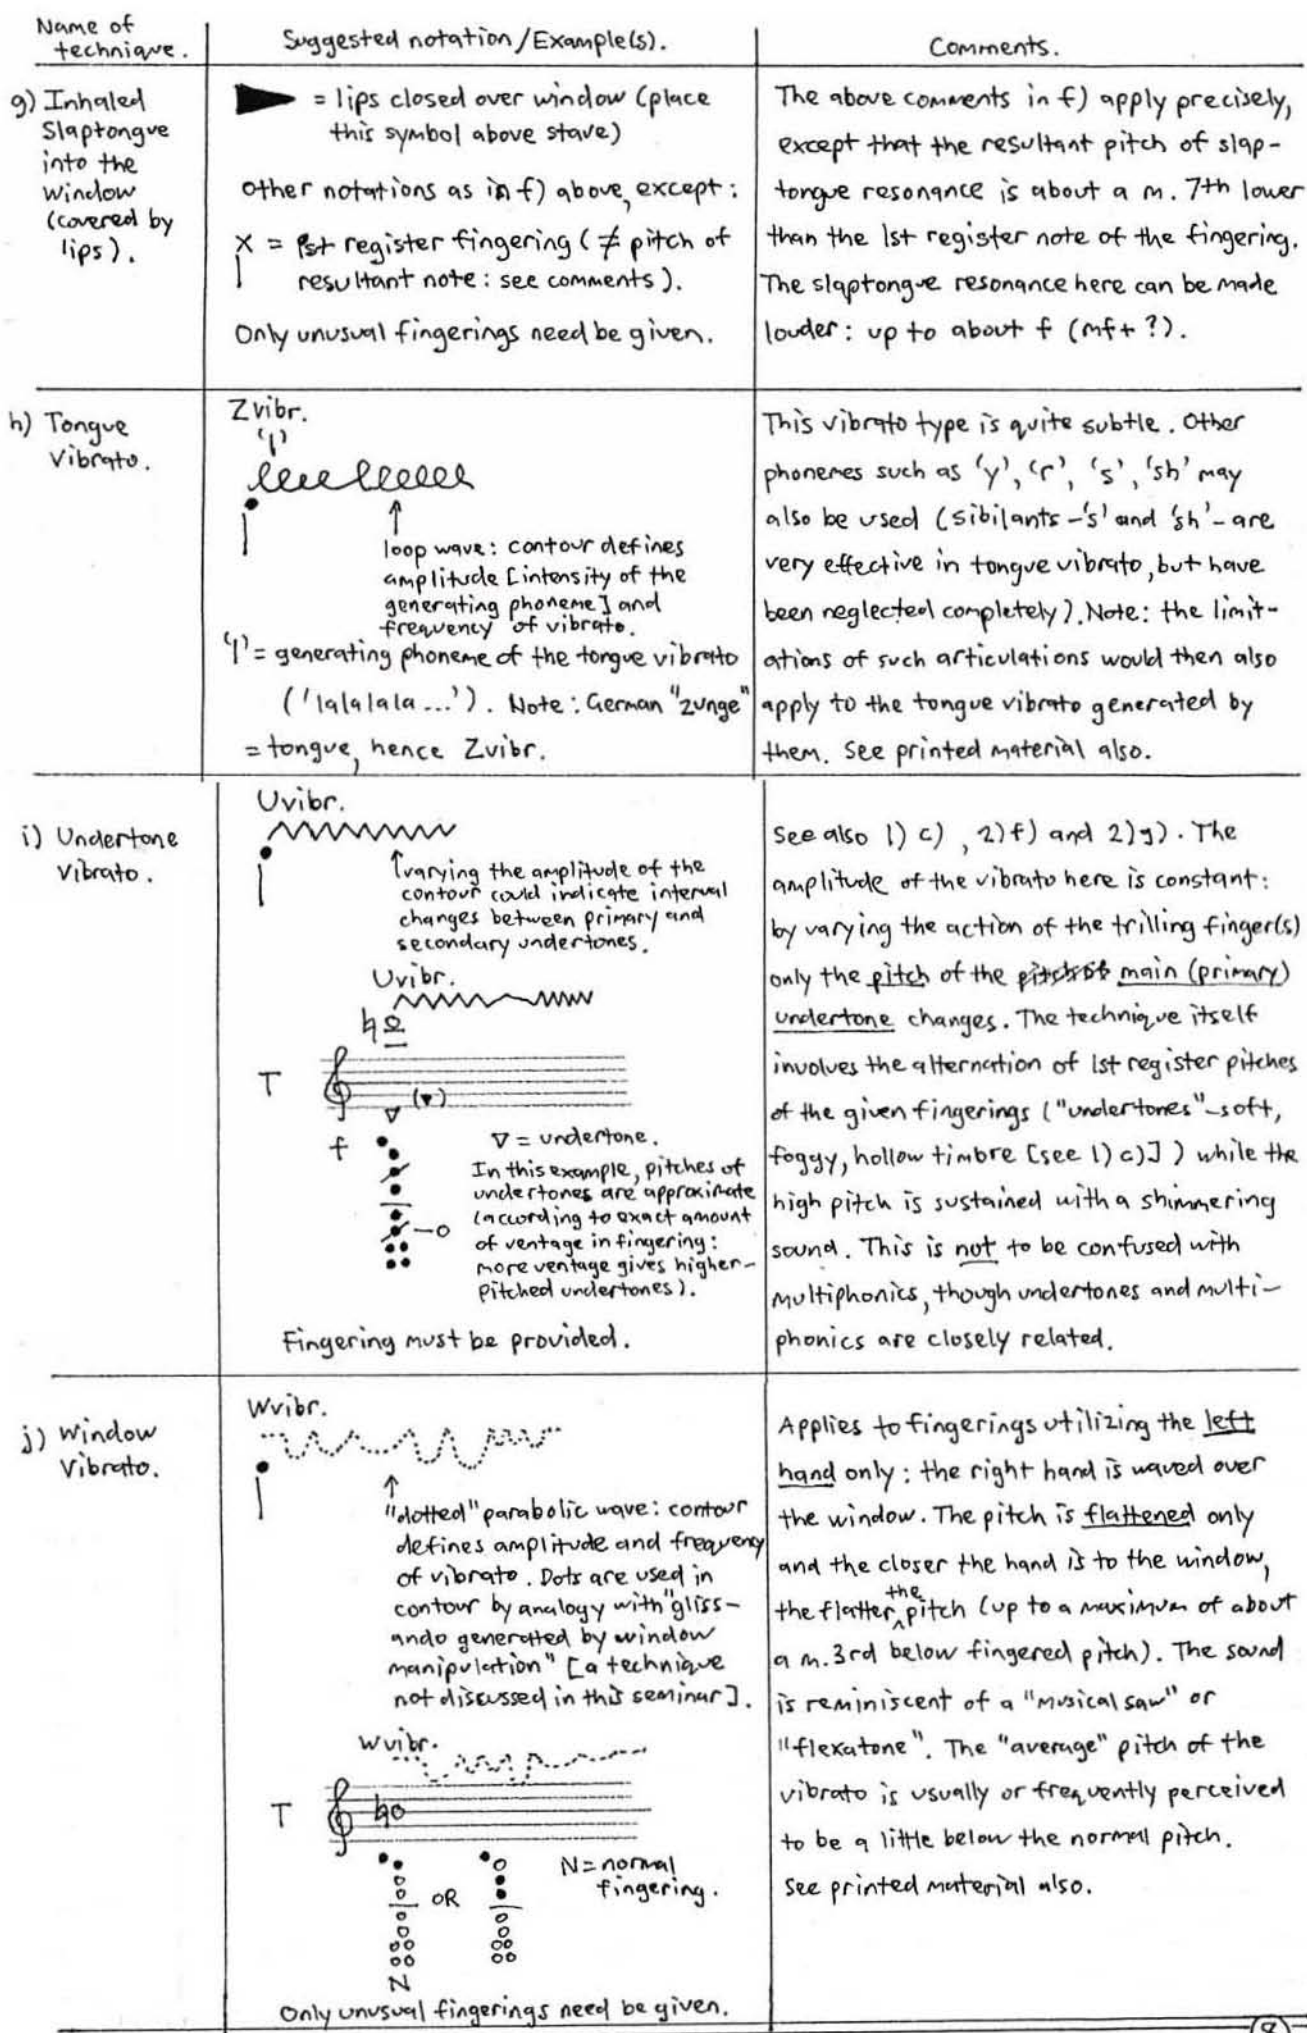 Name of
technique.
Suggested notation/Example(s).
Comments.
g) Inhaled
Slaptongue
into the
window
(covered by
lips).
= lips closed over window (place
this symbol above stave)
other notations as in f) above, except:
X = 1st register fingering (≠ pitch of
resultant note: see comments).
Only unusual fingerings need be given.
The above comments in f) apply precisely,
except that the resultant pitch of slap-
tongue resonance is about a m. 7th lower
than the 1st register note of the fingering.
The slaptongue resonance here can be made
louder: up to about f (mf+ ?).
h) Tongue
Vibrato.
Zvibr.
'l'
loop wave: contour defines
amplitude [intensity of the
generating phoneme] and
frequency of vibrato.
'l' = generating phoneme of the tongue vibrato
('lalalala...'). Note: German "zunge"
= tongue, hence Zvibr.
This vibrato type is quite subtle. Other
phonemes such as 'y', 'r', 's', 'sh' may
also be used (sibilants -'s' and 'sh'- are
very effective in tongue vibrato, but have
been neglected completely). Note: the limit-
ations of such articulations would then also
apply to the tongue vibrato generated by
them. See printed material also.
i) Undertone
Vibrato.
Uvibr.
varying the amplitude of the
contour could indicate interval
changes between primary and
secondary undertones.
Uvibr.
T
f
∇ = undertone.
In this example, pitches of
undertones are approximate
(according to exact amount
of ventage in fingering:
more ventage gives higher-
pitched undertones).
Fingering must be provided.
See also 1) c) , 2) f) and 2) g). The
amplitude of the vibrato here is constant:
by varying the action of the trilling finger(s)
only the pitch of the main (primary)
undertone changes. The technique itself
involves the alternation of 1st register pitches
of the given fingerings ("undertones" - soft,
foggy, hollow timbre [see 1) c)] ) while the
high pitch is sustained with a shimmering
sound. This is not to be confused with
multiphonics, though undertones and multi-
phonics are closely related.
j) Window
Vibrato.
Wvibr.
"dotted" parabolic wave: contour
defines amplitude and frequency
of vibrato. Dots are used in
contour by analogy with "gliss-
ando generated by window
manipulation" [a technique
not discussed in this seminar].
Wvibr.
T
OR
N = normal
fingering.
N
Only unusual fingerings need be given.
Applies to fingerings utilizing the left
hand only: the right hand is waved over
the window. The pitch is flattened only
and the closer the hand is to the window,
the flatter the pitch (up to a maximum of about
a m. 3rd below fingered pitch). The sound
is reminiscent of a "musical saw" or
"flexatone". The "average" pitch of the
vibrato is usually or frequently perceived
to be a little below the normal pitch.
See printed material also.